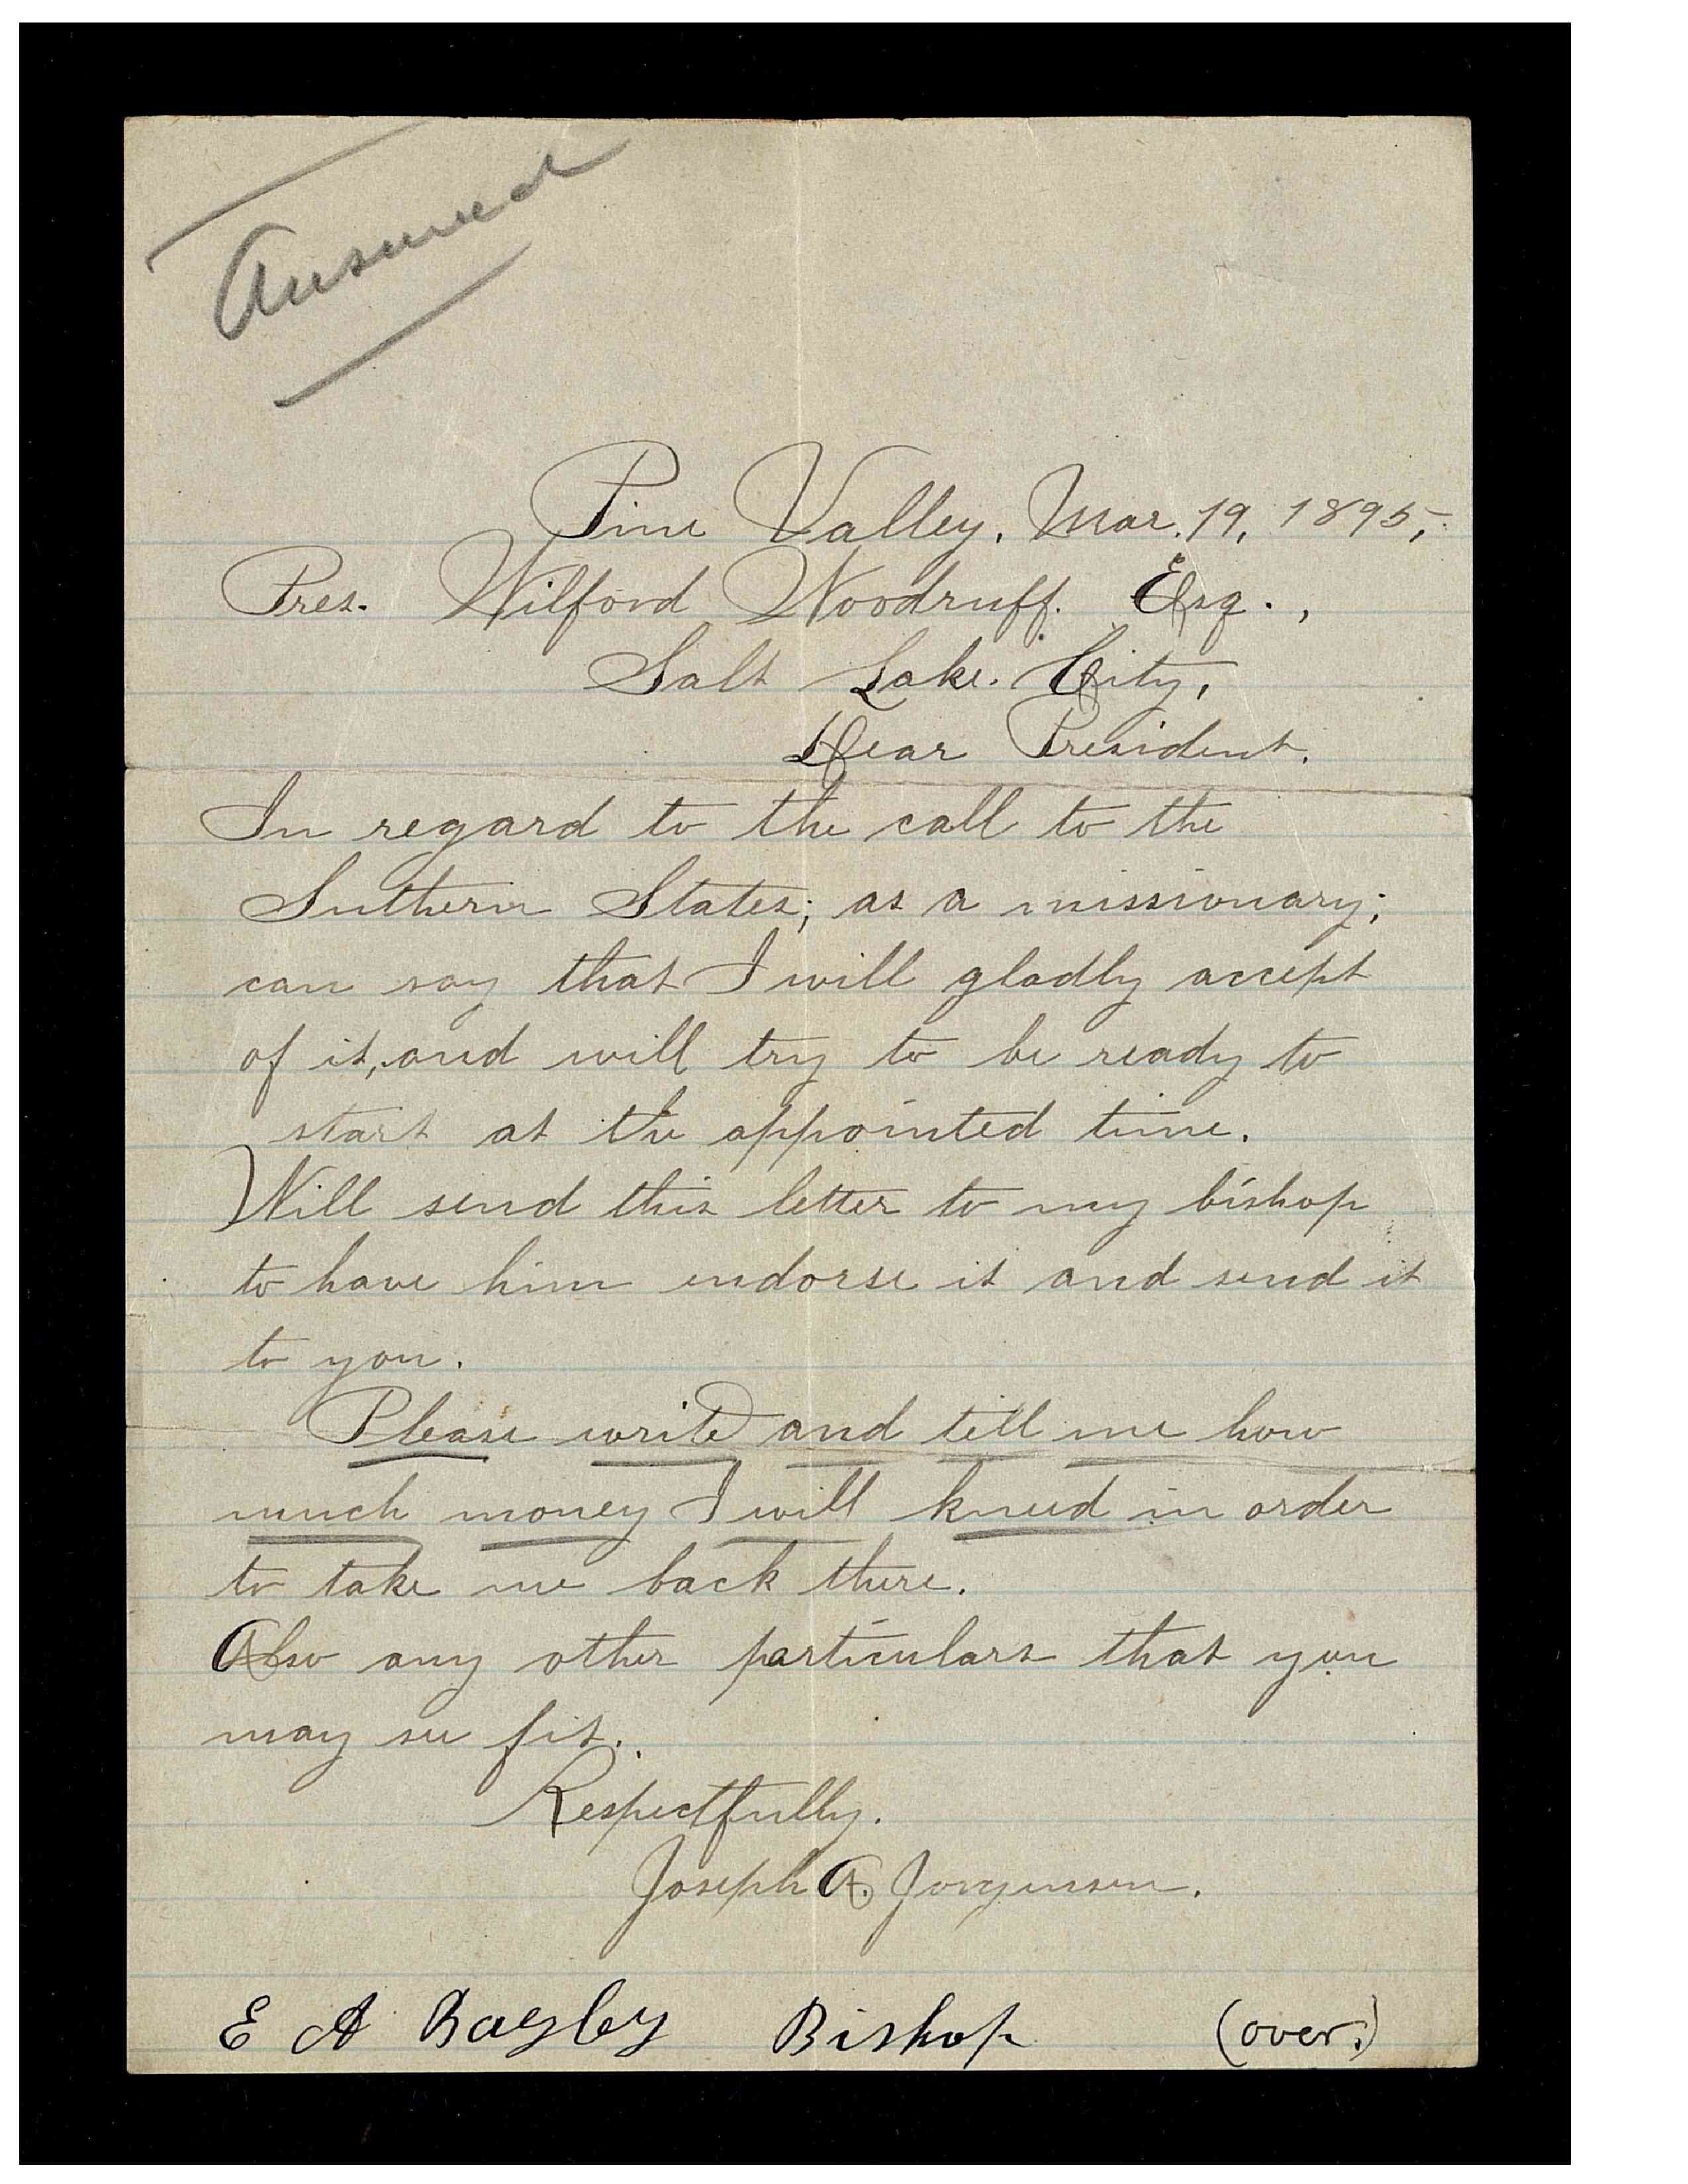 Answered
Pine Valley, Mar. 19, 1895,
Pres. Wilford Woodruff. Esq.,
Salt Lake. City,
Dear President.
In regard to the call to the
Suthern States; as a missionary;
can say that I will gladly accept
of it, and will try to be ready to
start at the appointed time.
Will send this letter to my bishop
to have him endorse it and send it
to you.
Please write and tell me how
much money I will kneed in order
to take me back there.
Also any other particulars that you
may see fit.
Respectfully.
Joseph A. Jorgensen.
E A Bagley Bishop (over.)